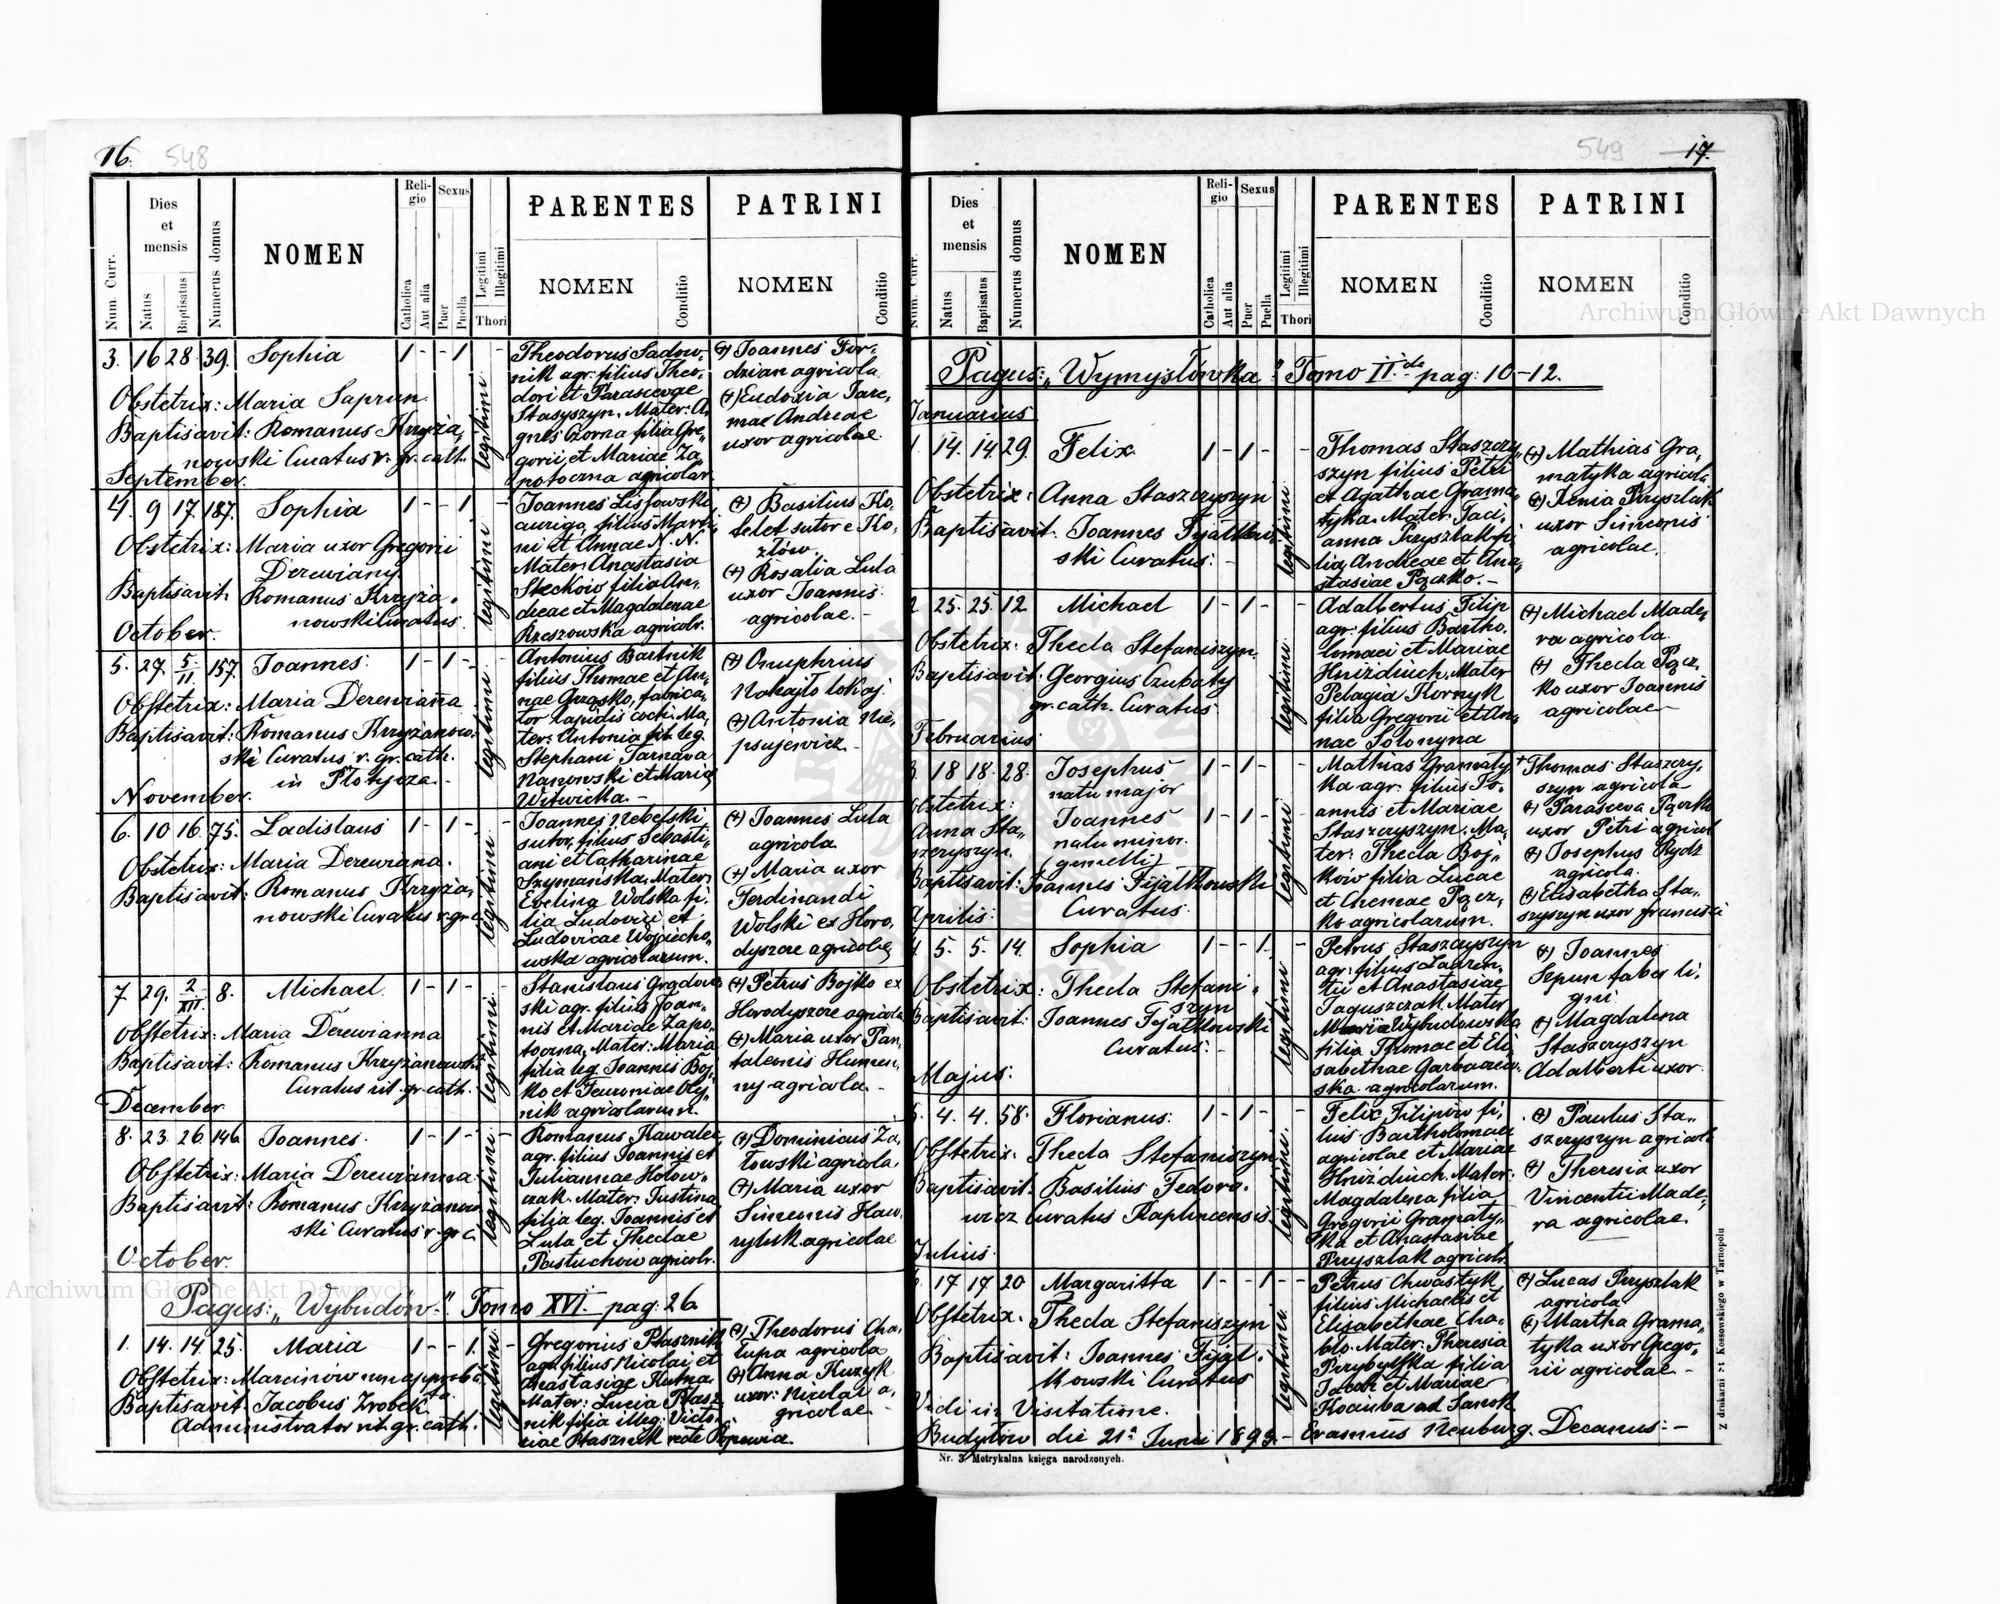 16. 548
Num. Curr.
Dies et mensis
Natus
Baptisatus
Numerus domus
NOMEN
Religio
Catholica
Aut alia
Sexus
Puer
Puella
Legitimi
Illegitimi
Thori
PARENTES
NOMEN
Conditio
PATRINI
NOMEN
Conditio
3. 16 28. 39. Sophia 1 - - 1 -
Obstetrix: Maria Saprun.
Baptisavit: Romanus Krzyża,
nowski Curatus r. gr. cath.
legitimi
Theodorus Sadow,
nik agr. filius Theo,
dori et Parascevae
Stasyszyn. Mater: A,
gnes Czorna filia Gre,
gorii et Mariae Za,
potoczna agricolar.
(+) Joannes For,
dzian agricola
(+) Eudoxia Jare,
mae Andreae
uxor agricolae.
September.
4. 9 17. 187. Sophia 1 - - 1 -
Obstetrix: Maria uxor Gregorii
Derewiany.
Baptisavit Romanus Krzyża,
nowski Curatus.
legitimi
Joannes Lissowski
auriga, filius Marci,
ni et Annae N. N.
Mater: Anastasia
Steckow filia An,
dreae et Magdalenae
Rzeszowska agricolr.
(+) Basilius Ko,
telet sutor e Ko,
złów.
(+) Rosalia Lula
uxor Joannis
agricolae. -
October.
5. 27. 5/II. 157. Joannes. 1 - 1 - -
Obstetrix: Maria Derewianna
Baptisavit: Romanus Krzyżanow,
ski Curatus r. gr. cath.
in Płotycza. -
legitimi
Antonius Bartnik
filius Thomae et An,
nae Grzesko, fabrica,
tor lapidis cocti. Ma,
ter: Antonia fil. leg.
Stephani Tarnawa
Nanowski et Maria
Witwicka. -
(+) Onuphrius
Nakajło lokaj.
(+) Antonia Nie,
psujewicz. -
November.
6. 10 16. 75. Ladislaus 1 - 1 - -
Obstetrix: Maria Derewiana.
Baptisavit: Romanus Krzyża,
nowski Curatus r. gr. c.
legitimi
Joannes Nebelski
sutor, filius Sebasti,
ani et Catharinae
Szymańska. Mater:
Evelina Wolska fi,
lia Ludovici et
Ludovicae Wojciecho,
wska agricolarum.
(+) Joannes Lula
agricola.
(+) Maria uxor
Ferdinandi
Wolski ex Horo,
dyszcze agricolae
7. 29. 2/XII. 8. Michael. 1 - 1 - -
Obstetrix: Maria Derewianna
Baptisavit: Romanus Krzyżanowski
Curatus rit. gr. cath.
legitimi
Stanislaus Grodow,
ski agr. filius Joan,
nis et Mariae Zapo,
toczna, Mater: Maria
filia leg. Joannis Boj,
ko et Feuroniae Olij,
nik agricolarum.
(+) Petrus Bojko ex
Horodyszcze agricola
(+) Maria uxor Pan,
taleonis Humen,
ny agricola. -
December
8. 23. 26. 146. Joannes. 1 - 1 - -
Obstetrix: Maria Derewianna
Baptisavit: Romanus Krzyżanow,
ski Curatus r. gr. c.
legitimi
Romanus Kawalec
agr. filius Joannis et
Juliannae Hołow,
czak. Mater: Justina
filia leg. Joannis et
Lula et Theclae
Pastuchow agricolr.
(+) Dominicus Za,
łowski agricola.
(+) Maria uxor
Simeonis Haw,
ryluk agricolae
October.
Pagus: „Wybudów". Tomo XVI. pag: 26.
1. 14. 14. 25. Maria 1 - - 1. -
Obstetrix: Marcinów non approba,
ta.
Baptisavit: Jacobus Zrobek
Administrator rit. gr. cath.
legitimi
Gregorius Ptasznik
agr. filius Nicolai et
Anastasiae Kutna.
Mater: Lucia Ptasz,
nik filia illeg. Victo,
riae Ptasznik recte Popowicz.
(+) Theodorus Cha,
łupa agricola
(+) Anna Kuzyk
uxor: Nicolai a,
gricolae -
549 17.
Num. Curr.
Dies et mensis
Natus
Baptisatus
Numerus domus
NOMEN
Religio
Catholica
Aut alia
Sexus
Puer
Puella
Legitimi
Illegitimi
Thori
PARENTES
NOMEN
Conditio
PATRINI
NOMEN
Conditio
Pagus: „Wymysłówka". Tomo II do pag: 10-12.
Januarius
1. 14. 14. 29. Felix. 1 - 1 - -
Obstetrix: Anna Staszczyszyn
Baptisavit: Joannes Fijałkow,
ski Curatus: -
legitimi
Thomas Staszczy,
szyn filius Petri
et Agathae Grama,
tyka. Mater: Taci,
anna Przyszlak fi,
lia Andreae et Ana,
stasiae Pączko. -
(+) Mathias Gra,
matyka agricola
(+) Xenia Przyszlak
uxor Simeonis
agricolae.
2. 25. 25. 12. Michael 1 - 1 - -
Obstetrix: Thecla Stefaniszyn.
Baptisavit: Georgius Czubaty
gr. cath. Curatus
legitimi
Adalbertus Filip
agr. filius Bartho,
lomaei et Mariae
Hniździuch. Mater
Pelagia Kornyk
filia Gregorii et An,
nae Sołonyna
(+) Michael Made,
ra agricola
(+) Thecla Pącz,
ko uxor Joannis
agricolae -
Februarius
3. 18. 18. 28. Josephus 1 - 1 - -
natu major
Obstetrix:
Anna Sta,
szczyszyn.
Joannes 1 - 1 - -
natu minor.
(gemelli)
Baptisavit: Joannes Fijałkowski
Curatus.
legitimi
Mathias Gramaty,
ka agr. filius Jo,
annis et Mariae
Staszczyszyn. Ma,
ter: Thecla Boj,
ków filia Lucae
et Annae Pącz,
ko agricolarum.
+ Thomas Staszczy,
szyn agricola
(+) Parasceva Pączko
uxor Petri agricol
(+) Josephus Rydz
agricola.
(+) Elisabetha Sta,
szyszyn uxor Francisci
Aprilis:
4. 5. 5. 14. Sophia 1 - - 1. -
Obstetrix: Thecla Stefani,
szyn
Baptisavit: Joannes Fijałkowski
Curatus. -
legitimi
Petrus Staszczyszyn
agr. filius Lauren,
tii et Anastasiae
Jaguszczak. Mater
Maria Wybudowska
filia Thomae et Eli,
sabethae Garbaczew,
ska agricolarum.
(+) Joannes
Szpun faber li,
gni
(+) Magdalena
Staszczyszyn
Adalberti uxor
Majus:
5. 4. 4. 58. Florianus: 1 - 1 - -
Obstetrix: Thecla Stefaniszyn
Baptisavit: Basilius Fedoro,
wicz Curatus Kaplincensis
legitimi
Felix Filipów fi,
lius Bartholomaei
agricolae et Mariae
Hniździuch. Mater:
Magdalena filia
Gregorii Gramaty,
ka et Anastasiae
Przyszlak agricolr.
(+) Paulus Sta,
szczyszyn agricola
(+) Theresia uxor
Vincentii Made,
ra agricolae.
Julius.
6. 17 17 20 Margaritta 1 - - 1 - -
Obstetrix: Thecla Stefaniszyn
Baptisavit: Joannes Fijał,
kowski Curatus
legitimi
Petrus Chwastyk
filius Michaelis et
Elisabethae Cha,
bło. Mater: Theresia
Przybylska filia
Jacobi et Mariae
Kociuba ad Sanok
(+) Lucas Przyszlak
agricola
(+) Martha Grama,
tyka uxor Grego,
rii agricolae -
Vidi in Visitatione.
Budyłów die 21a Junii 1899. - Erasmus Neuburg. Decanus: -
Nr. 3 Metrykalna księga narodzonych.
Z drukarni St. Kossowskiego w Tarnopolu
Archiwum Główne Akt Dawnych
Archiwum Główne Akt Dawnych